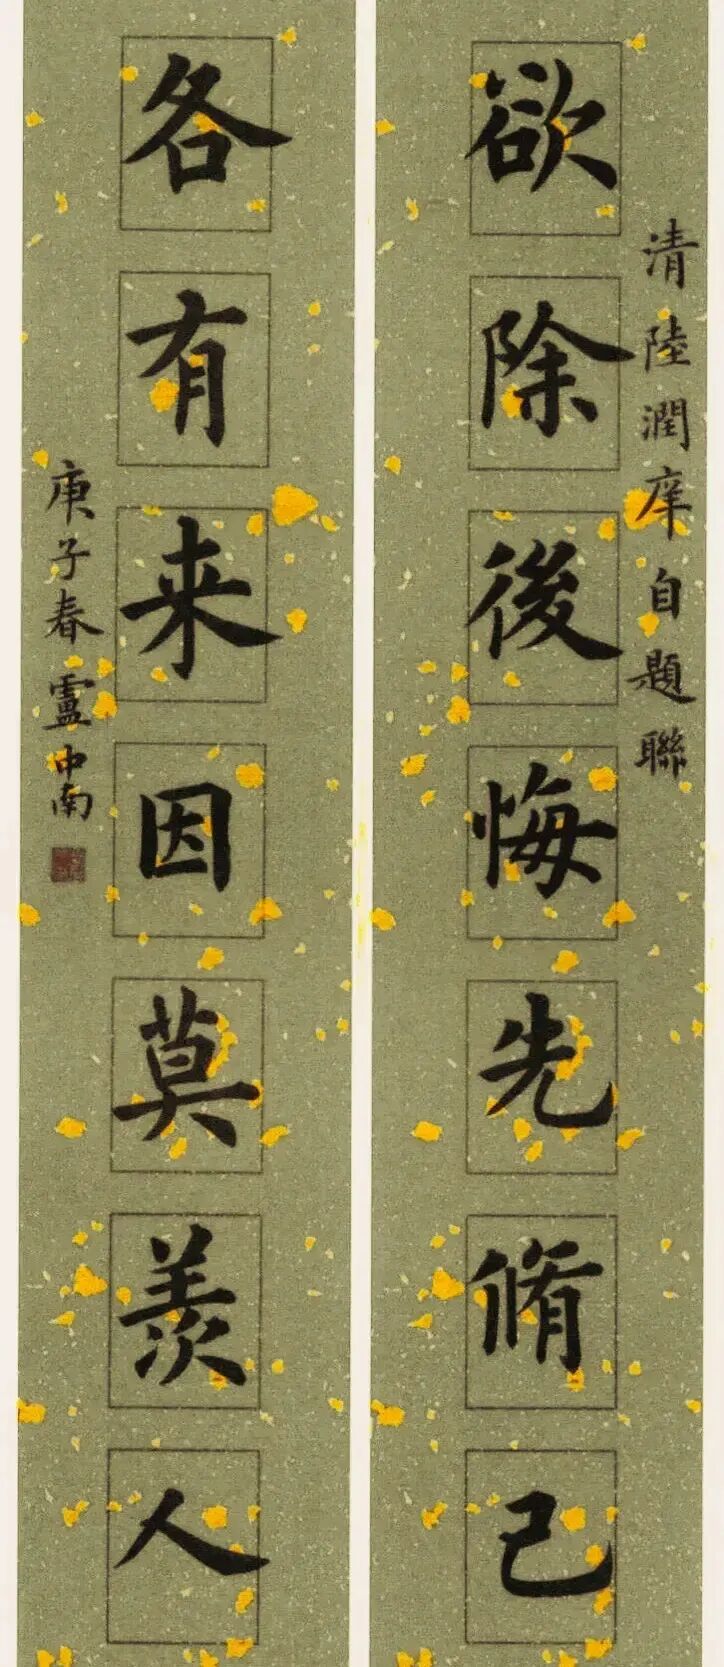 清陸潤庠自題聯
欲除後悔先脩己
各有来因莫羨人
庚子春盧中南